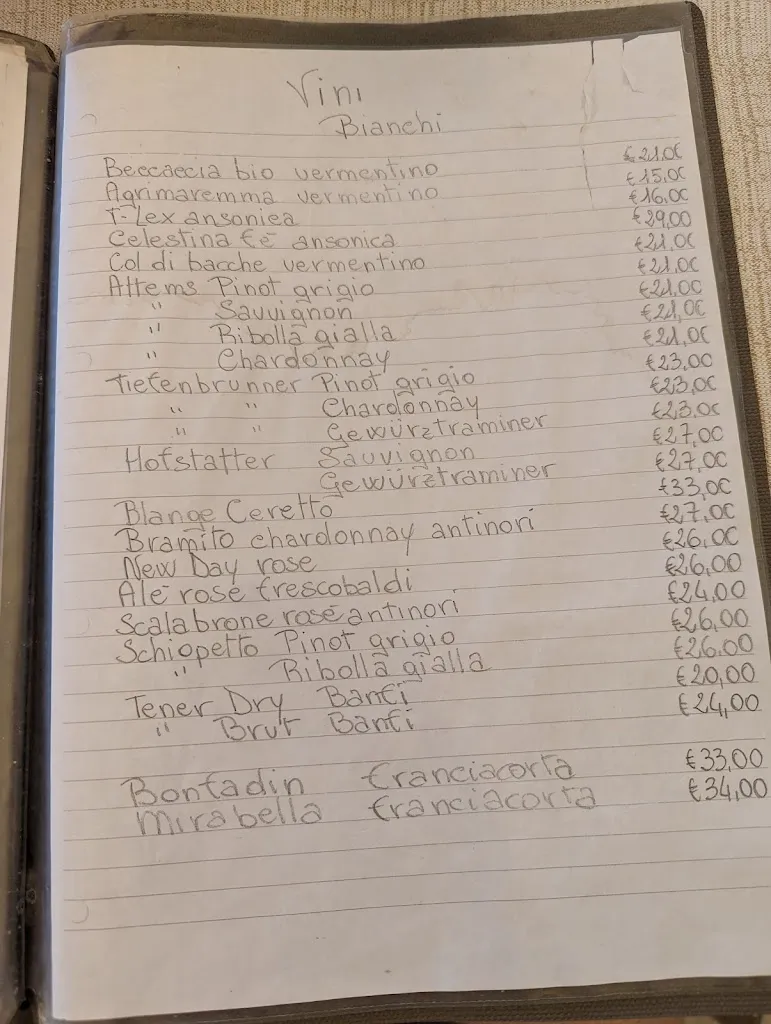 Vini
Bianchi
Beccaecia bio vermentino €21,00
Agrimaremma vermentino €15,00
T-Lex ansonica €16,00
Celestina fè ansonica €29,00
Col di bacche vermentino €21,00
Attems Pinot grigio €21,00
" Sauvignon €21,00
" Ribolla gialla €21,00
" Chardonnay €21,00
Tiefenbrunner Pinot grigio €23,00
" " Chardonnay €23,00
" " Gewürztraminer €23,00
Hofstatter Sauvignon €27,00
Gewürztraminer €27,00
Blange Ceretto €33,00
Bramito chardonnay antinori €27,00
New Day rose €26,00
Alè rosé frescobaldi €26,00
Scalabrone rosé antinori €24,00
Schiopetto Pinot grigio €26,00
" Ribolla gialla €26,00
Tener Dry Banfi €20,00
" Brut Banfi €24,00
Bonfadin franciacorta €33,00
Mirabella franciacorta €34,00